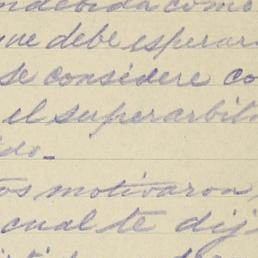 ndebida como
que debe esperar
se considere co
el superarbit
ido.
tos motivaron
cual te dij